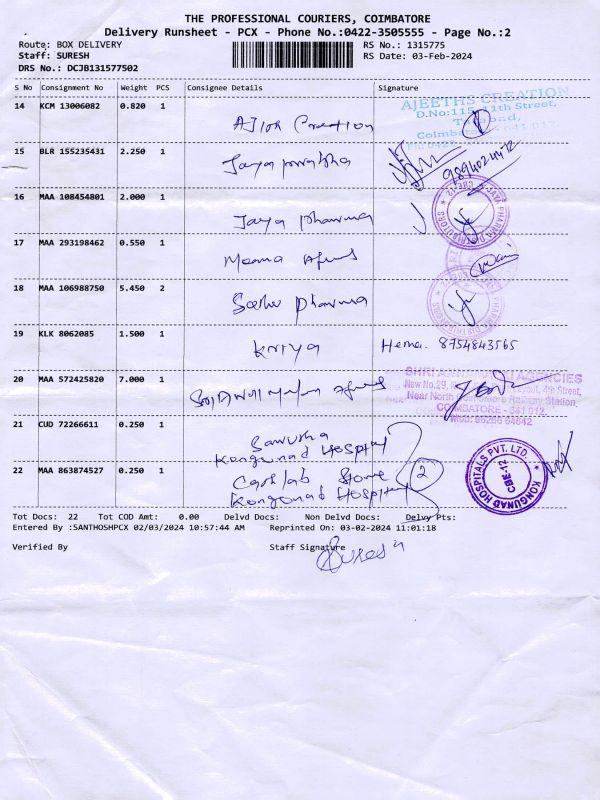 THE PROFESSIONAL COURIERS, COIMBATORE
Delivery Runsheet - PCX - Phone No.:0422-3505555 - Page No.:2
Route: BOX DELIVERY
RS No.: 1315775
Staff: SURESH
RS Date: 03-Feb-2024
DRS No.: DCJB131577502
S No Consignment No Weight PCS Consignee Details Signature
14 KCM 13006082 0.820 1
Creation
AJEETHS CREATION
11th Street,
Coimbatore
15 BLR 155235431 2.250 1 Jaya prabha
16 MAA 108454801 2.000 1 Jaya pharma
JAYA PHARMA DISTRIBUTORS
CBE-12
17 MAA 293198462 0.550 1 Meena
18 MAA 106988750 5.450 2 pharma
19 KLK 8062085 1.500 1 Kriya Hema. 8754843565
20 MAA 572425820 7.000 1
AGENCIES
New No.29,
4th Street,
Near North Coimbatore Railway Station,
COIMBATORE - 641 012.
21 CUD 72266611 0.250 1
Kongunad Hospital
22 MAA 863874527 0.250 1 Cathlab Store 2
Kongunad Hospital
KONGUNAD HOSPITALS PVT. LTD.
CBE-12
Tot Docs: 22 Tot COD Amt: 0.00 Delvd Docs: Non Delvd Docs: Delvy Pts:
Entered By :SANTHOSHPCX 02/03/2024 10:57:44 AM Reprinted On: 03-02-2024 11:01:18
Verified By Staff Signature
Suresh